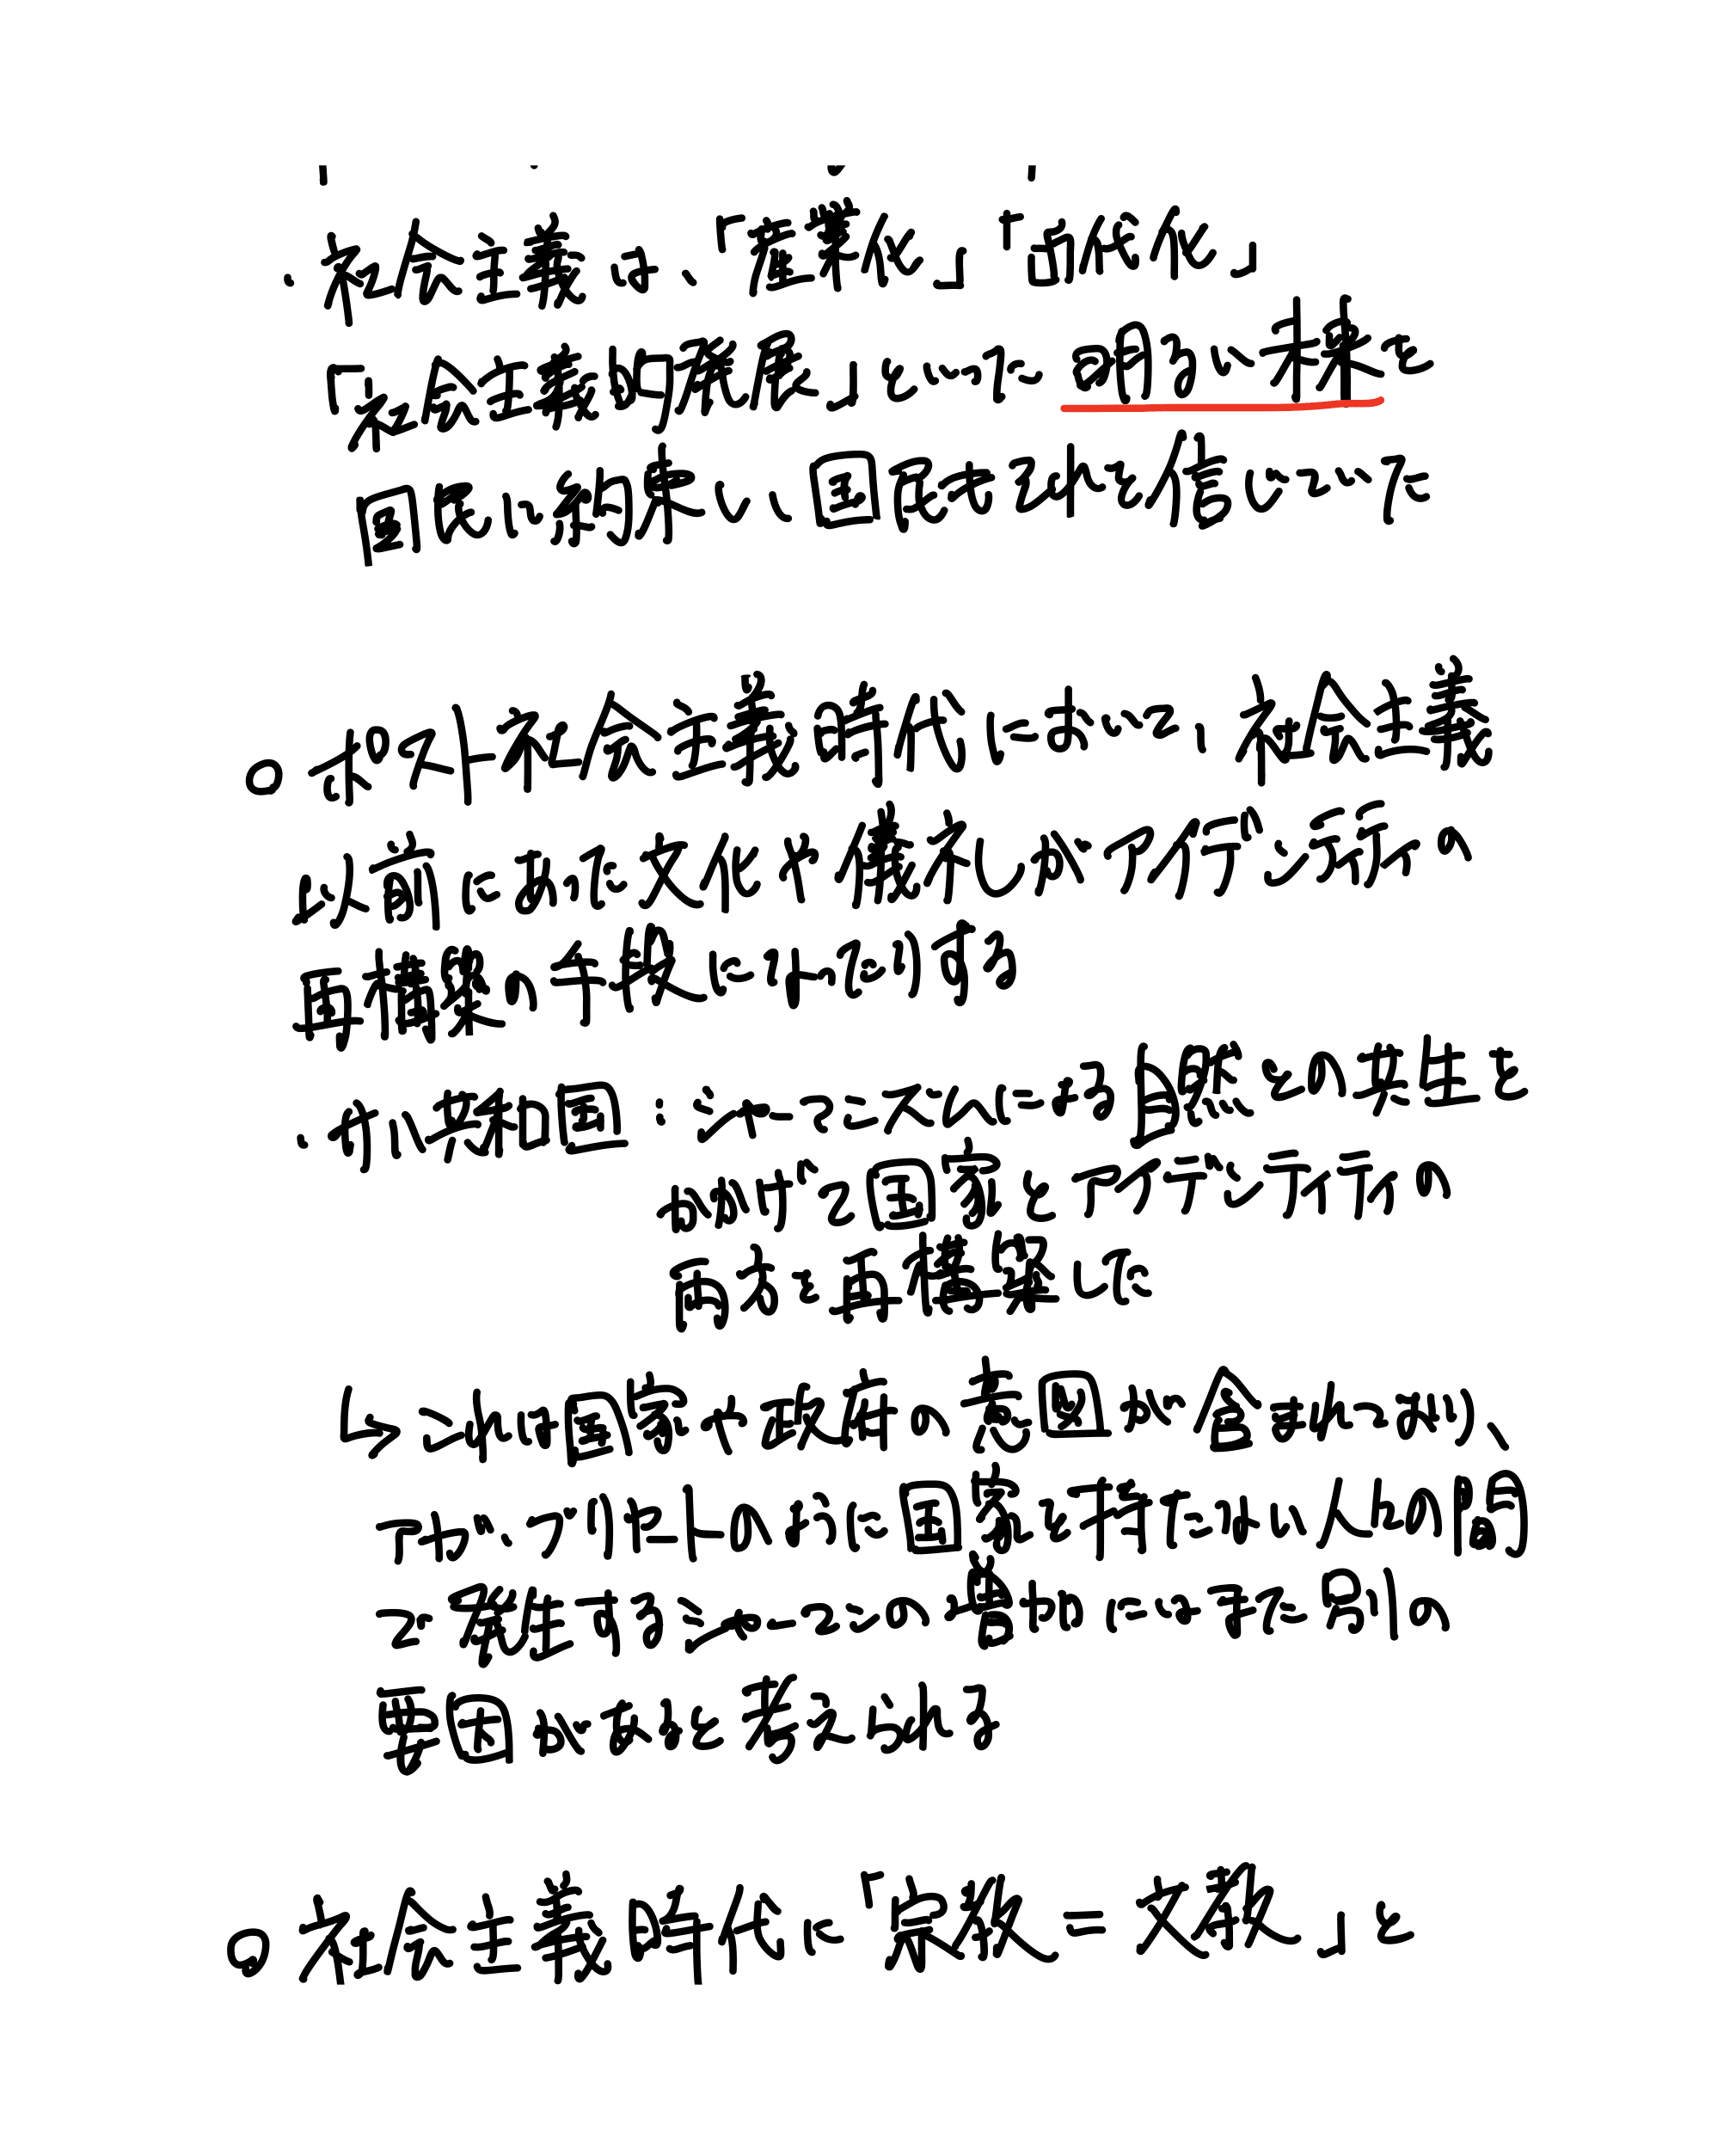 ・社会主義は、「産業化」「近代化」
「社会主義的発展」といった明るい未来を
国民に約束し、国民もそれを信じていた
○ポスト社会主義時代において、社会主義
以前にあった文化や儀礼がアイデンティティの
再構築の手段になったりする
・サハ共和国：シャーマニズムによる自然との共生を
かかげて国家とアイデンティティの
両方を再構築した
↳これは国家や政府の意図が含まれており、
ブリヤートのように国家を持たない人々の間
で発生するシャーマンの増加にはまた別の
要因があると考えられる
○社会主義時代に「宗教＝文教」と